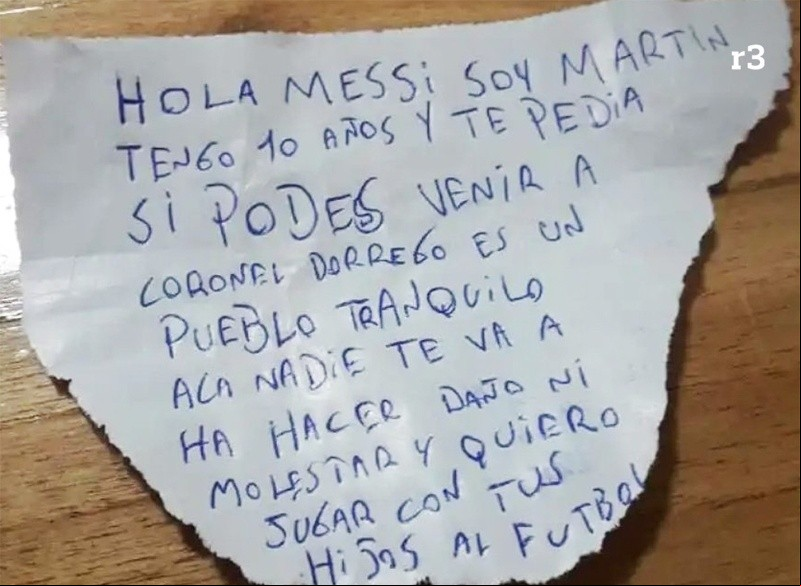 r3
HOLA MESSi SOY MARTIN
TENGO 10 AÑOS Y TE PEDiA
Si PODES VENiR A
CORONEL DORREGO ES UN
PUEBLO TRANQUiLO
ACA NADiE TE VA A
HA HACER DAÑO Ni
MOLESTAR Y QUiERO
JUGAR CON TUS
HiJOS AL FUTBOL